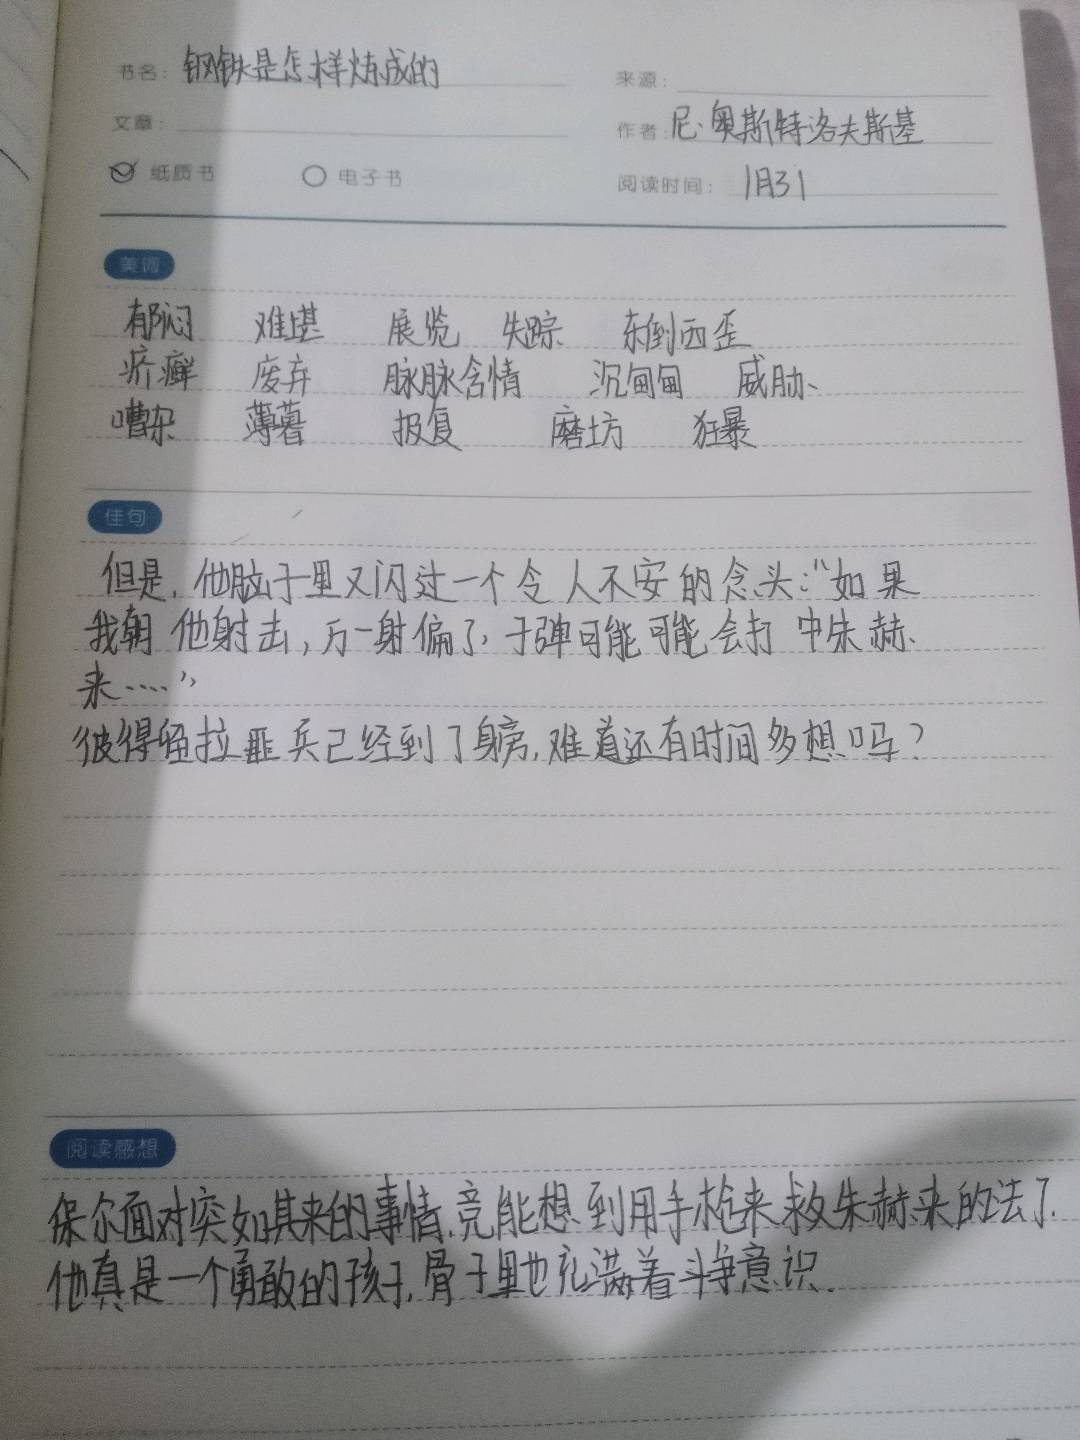 书名：钢铁是怎样炼成的
来源：
文章：
作者：尼·奥斯特洛夫斯基
纸质书 电子书
阅读时间：1月31
美词
郁闷 难堪 展览 失踪 东倒西歪
疥癣 废弃 脉脉含情 沉甸甸 威胁
嘈杂 薄暮 报复 磨坊 狂暴
佳句
但是，他脑子里又闪过一个令人不安的念头：“如果
我朝他射击，万一射偏了，子弹可能可能会打中朱赫
来……”
彼得留拉匪兵已经到了身旁，难道还有时间多想吗？
阅读感想
保尔面对突如其来的事情，竞能想到用手枪来救朱赫来的法了.
他真是一个勇敢的孩子，骨子里也充满着斗争意识.